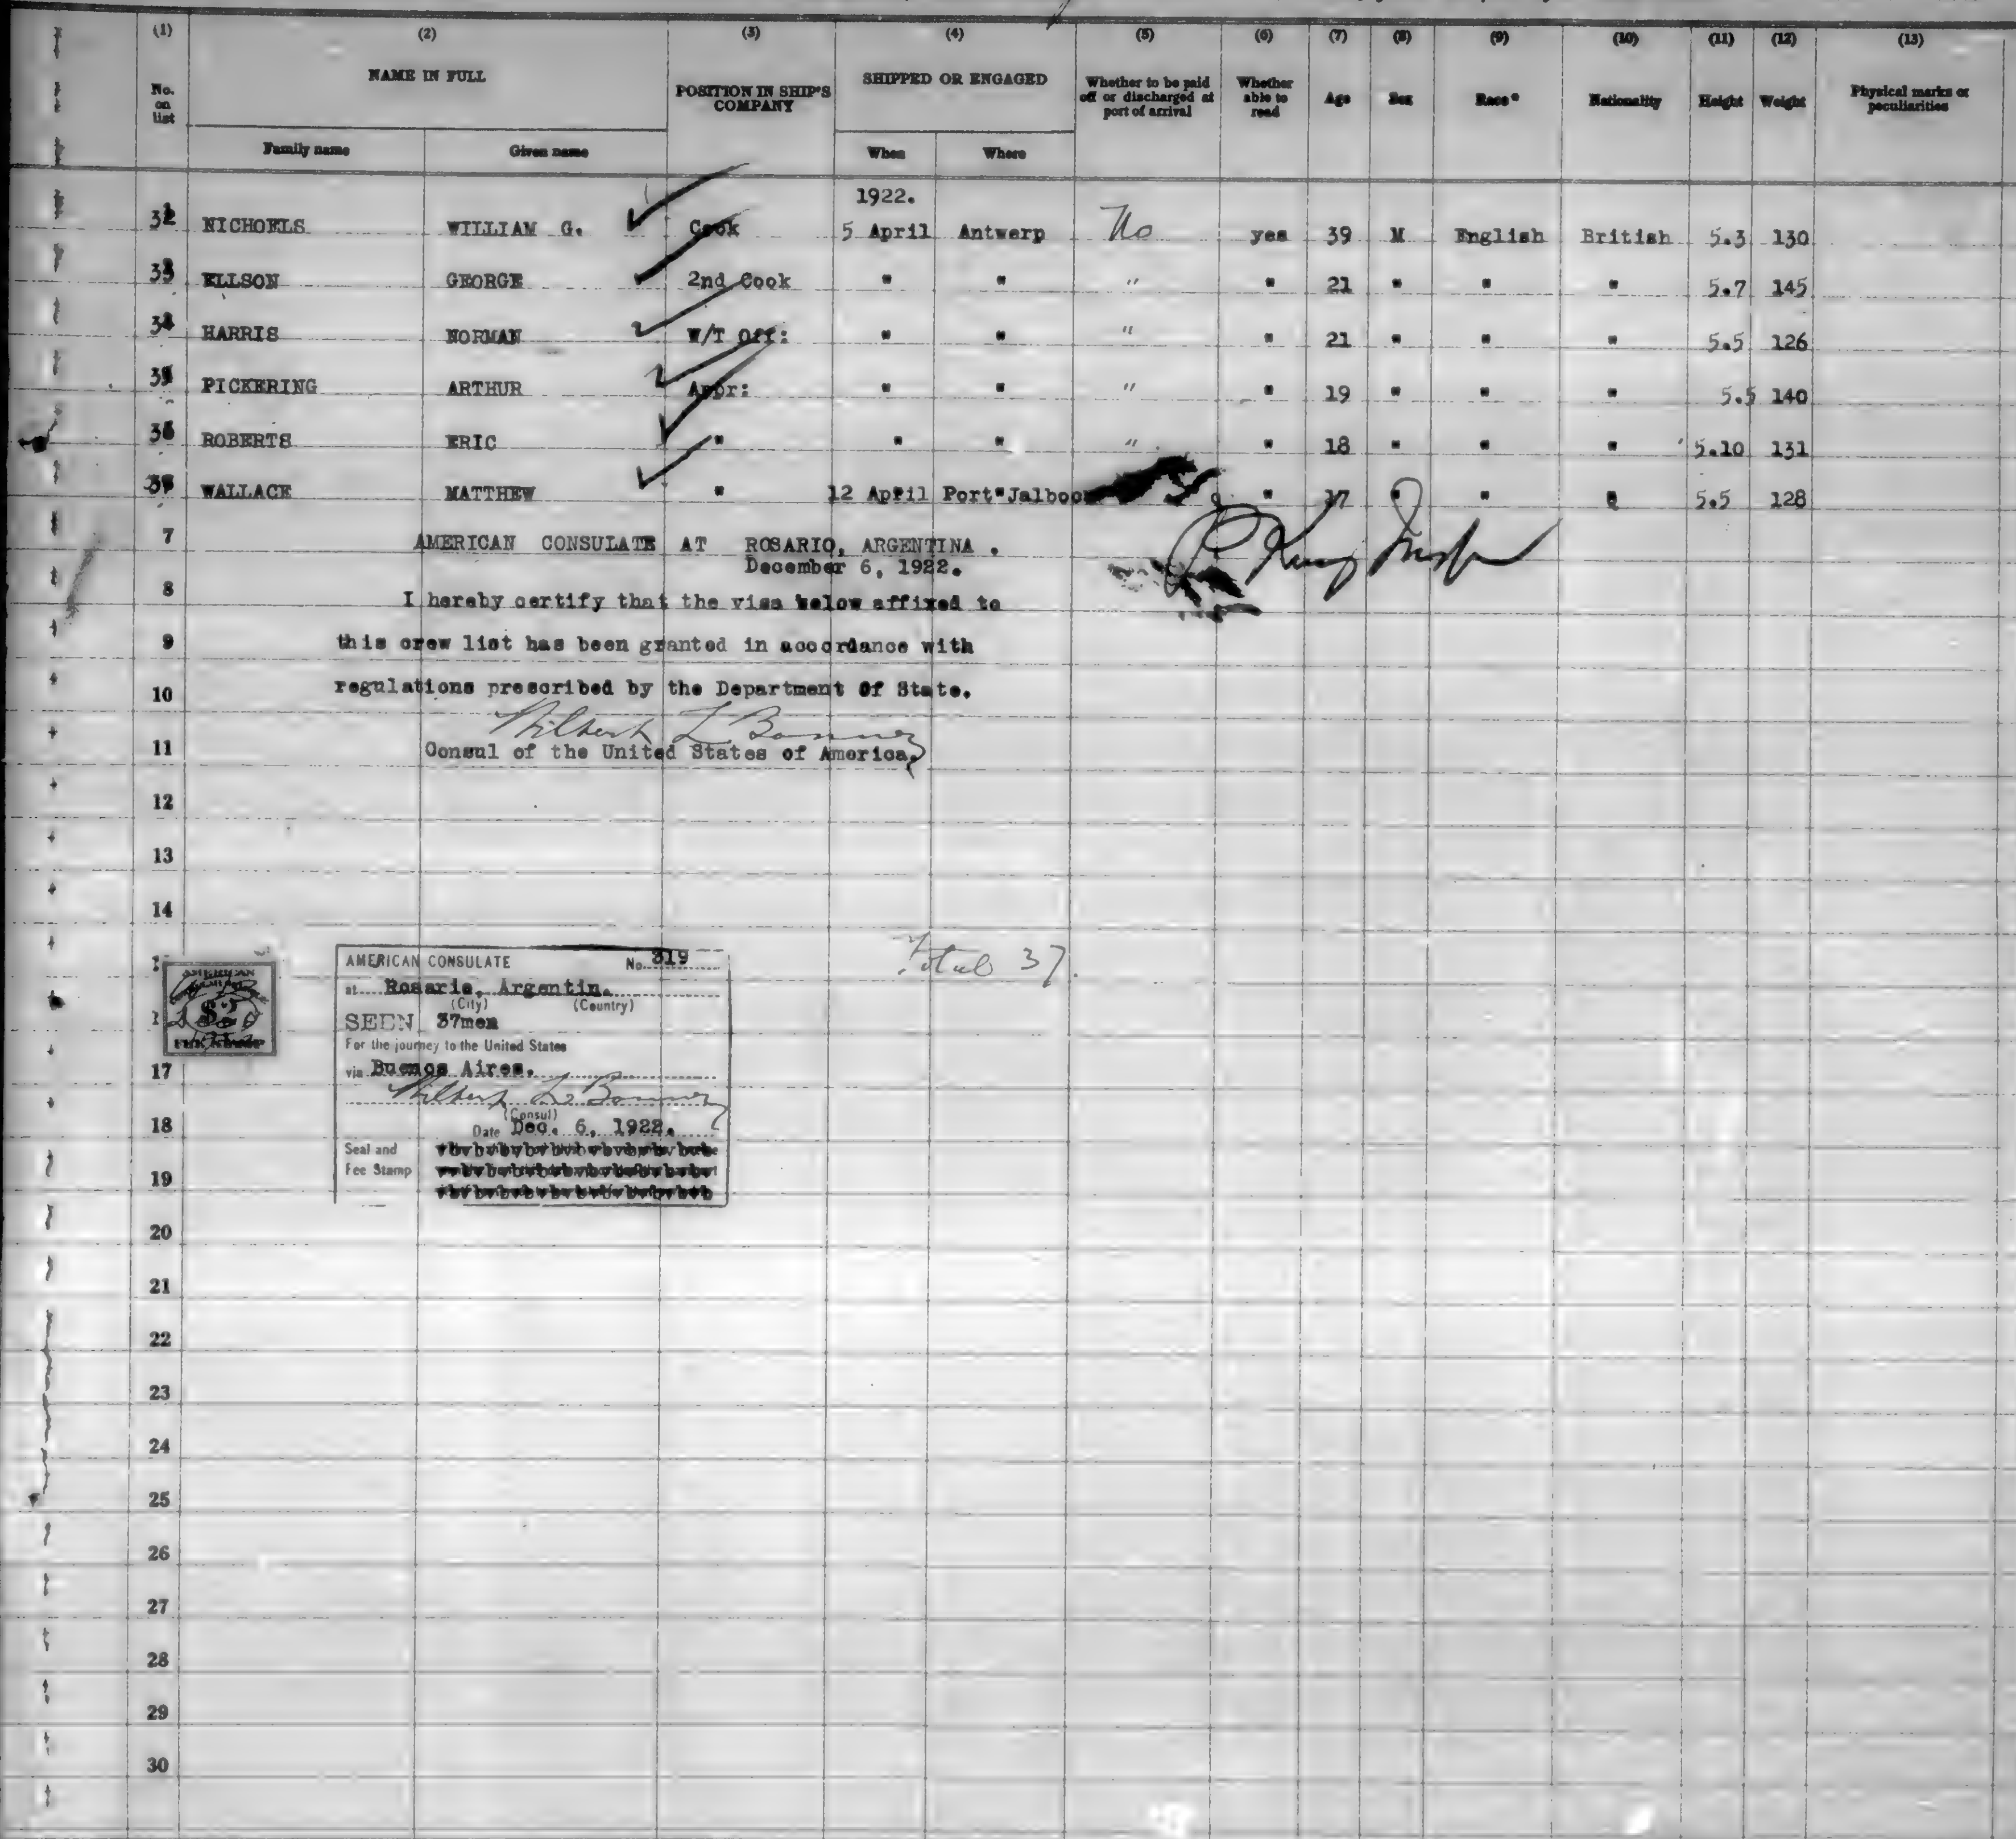 (1) (2) (3) (4) (5) (6) (7) (8) (9) (10) (11) (12) (13)
No. on list NAME IN FULL POSITION IN SHIP'S COMPANY SHIPPED OR ENGAGED Whether to be paid off or discharged at port of arrival Whether able to read Age Sex Race* Nationality Height Weight Physical marks or peculiarities
Family name Given name When Where
1922.
32 NICHOELS WILLIAM G. Cook 5 April Antwerp No yes 39 M English British 5.3 130
33 ELLSON GEORGE 2nd Cook " " " " 21 " " " 5.7 145
34 HARRIS NORMAN W/T Off: " " " " 21 " " " 5.5 126
35 PICKERING ARTHUR Appr: " " " " 19 " " " 5.5 140
36 ROBERTS ERIC " " " " " 18 " " " 5.10 131
37 WALLACE MATTHEW " 12 April Port Jalboo " 17 " " " 5.5 128
7 AMERICAN CONSULATE AT ROSARIO, ARGENTINA.
December 6, 1922.
8 I hereby certify that the visa below affixed to
9 this crew list has been granted in accordance with
10 regulations prescribed by the Department Of State.
Wilbert L Bonney
11 Consul of the United States of America.
12
13
14
Total 37.
AMERICAN CONSULATE No. 319
at Rosario, Argentin.
(City) (Country)
SEEN 37men
For the journey to the United States
17 via Buenos Aires.
Wilbert L Bonney
(Consul)
18 Date Dec. 6, 1922.
Seal and
19 Fee Stamp
AMERICAN
$2
20
21
22
23
24
25
26
27
28
29
30